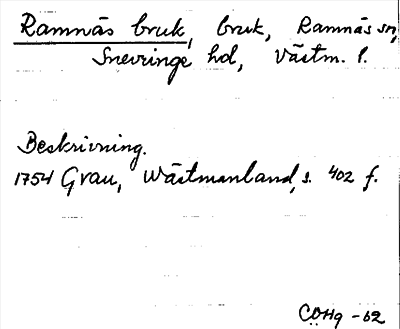 Ramnäs bruk, bruk, Ramnäs sn,
Snevringe hd, Västm. l.
Beskrivning.
1754 Grau, Wästmanland, s. 402 f.
CÖHg -62